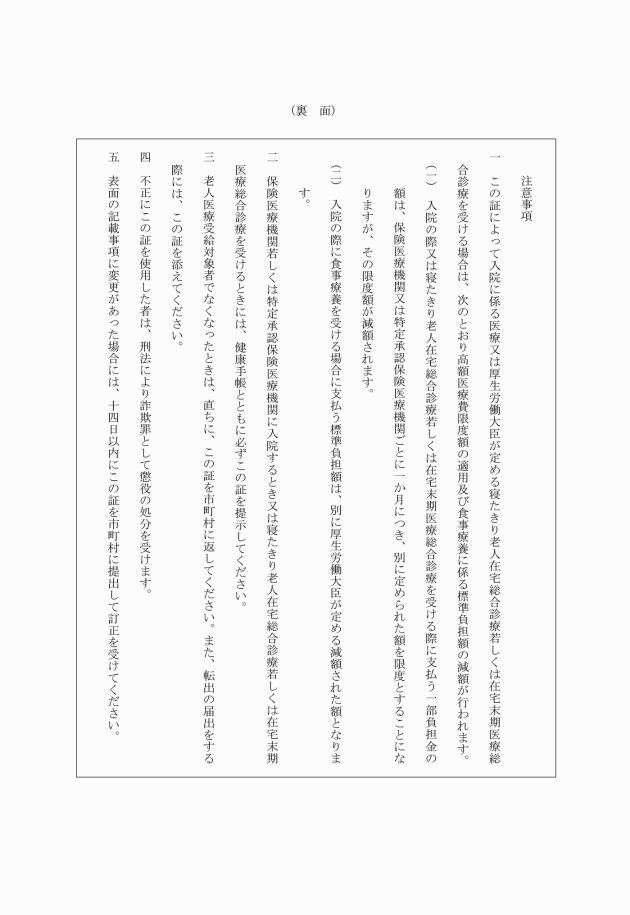 （裏　面）
注意事項
一　この証によって入院に係る医療又は厚生労働大臣が定める寝たきり老人在宅総合診療若しくは在宅末期医療総
合診療を受ける場合は、次のとおり高額医療費限度額の適用及び食事療養に係る標準負担額の減額が行われます。
（一）　入院の際又は寝たきり老人在宅総合診療若しくは在宅末期医療総合診療を受ける際に支払う一部負担金の
額は、保険医療機関又は特定承認保険医療機関ごとに一か月につき、別に定められた額を限度とすることにな
りますが、その限度額が減額されます。
（二）　入院の際に食事療養を受ける場合に支払う標準負担額は、別に厚生労働大臣が定める減額された額となりま
す。
二　保険医療機関若しくは特定承認保険医療機関に入院するとき又は寝たきり老人在宅総合診療若しくは在宅末期
医療総合診療を受けるときには、健康手帳とともに必ずこの証を提示してください。
三　老人医療受給対象者でなくなったときは、直ちに、この証を市町村に返してください。また、転出の届出をする
際には、この証を添えてください。
四　不正にこの証を使用した者は、刑法により詐欺罪として懲役の処分を受けます。
五　表面の記載事項に変更があった場合には、十四日以内にこの証を市町村に提出して訂正を受けてください。